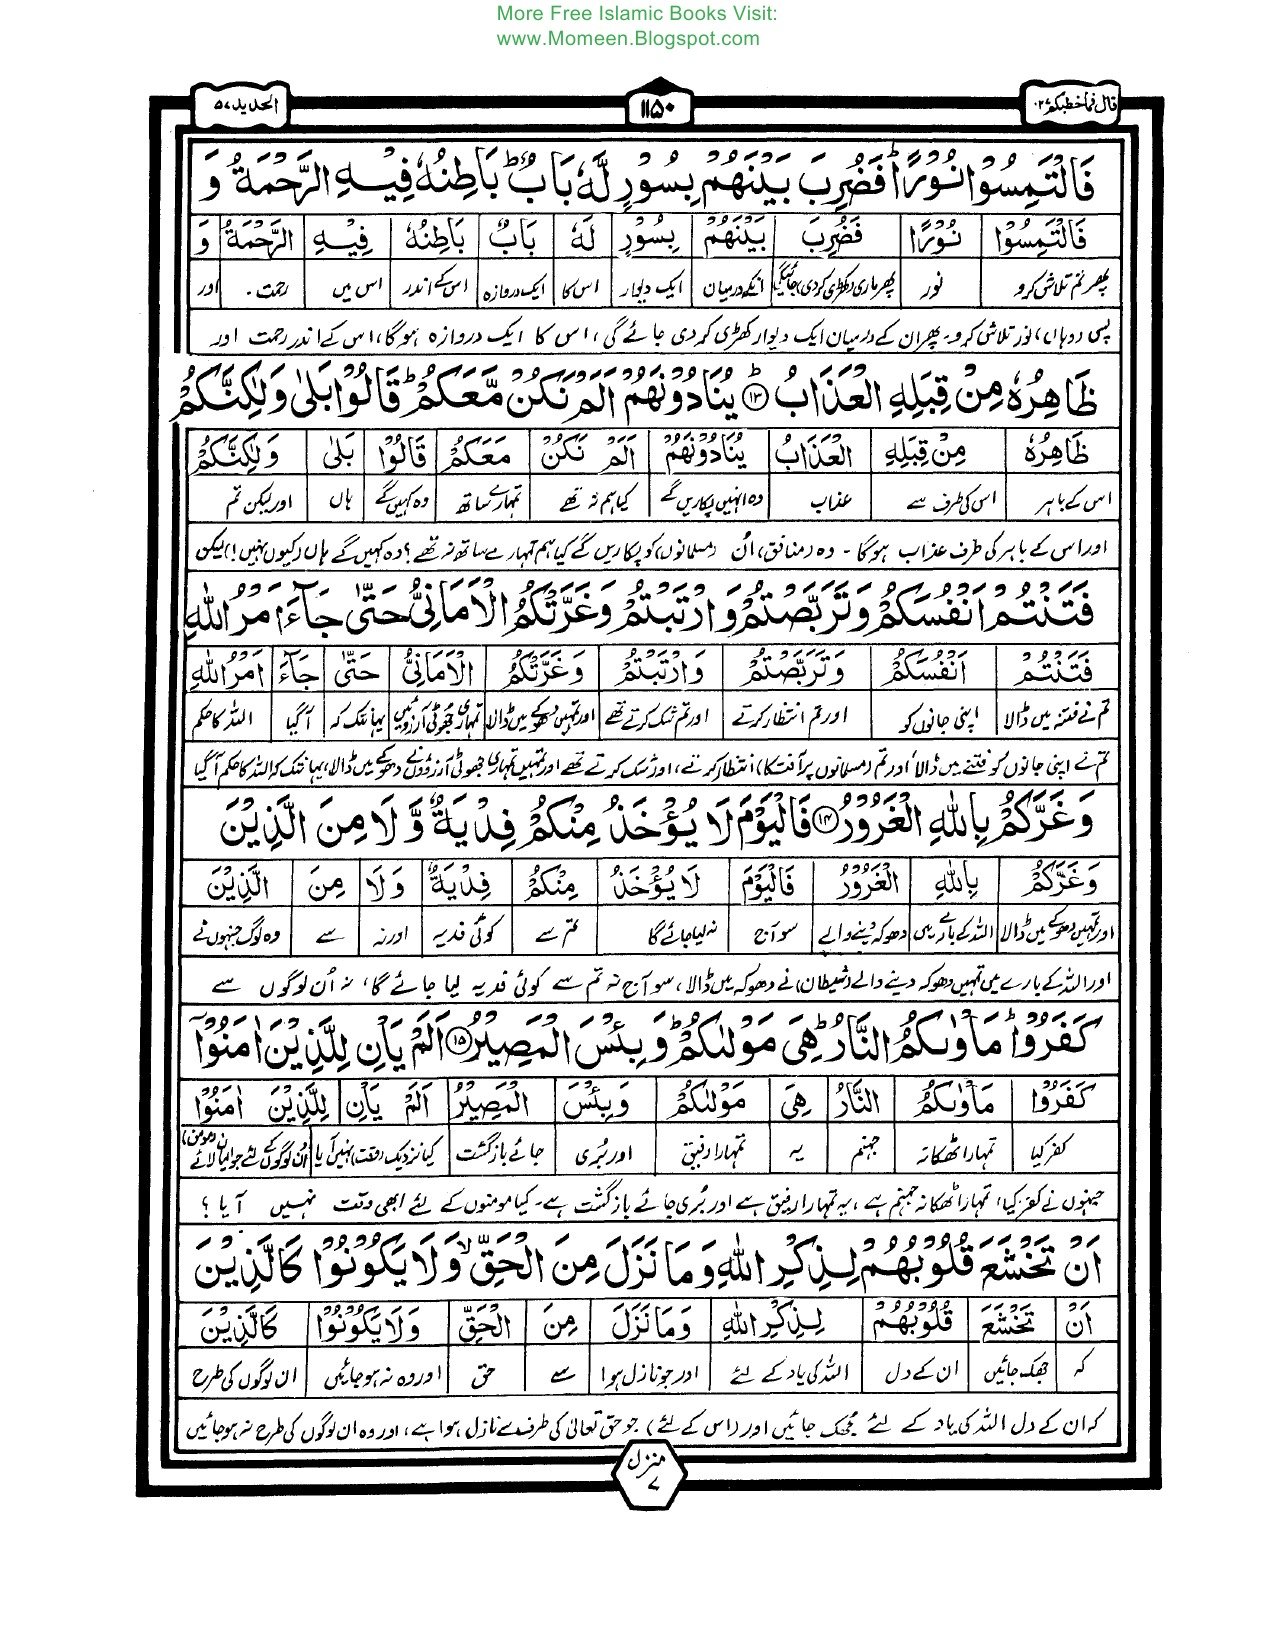 More Free Islamic Books Visit:
www.Momeen.Blogspot.com
قال فما خطبکم ۲۷
۱۱۵۰
الحدید ۵۷
فَالْتَمِسُوْا نُوْرًا ؕ فَضُرِبَ بَیْنَهُمْ بِسُوْرٍ لَّهٗ بَابٌ ؕ بَاطِنُهٗ فِیْهِ الرَّحْمَةُ وَ
فَالْتَمِسُوْا نُوْرًا فَضُرِبَ بَیْنَهُمْ بِسُوْرٍ لَهٗ بَابٌ بَاطِنُهٗ فِیْهِ الرَّحْمَةُ وَ
پھر تم تلاش کرو نور پھر ماری (کھڑی کردی) جائیگی انکے درمیان ایک دیوار اس کا ایک دروازہ اس کے اندر اس میں رحمت ۔ اور
پس (وہاں) نور تلاش کرو۔ پھر ان کے درمیان ایک دیوار کھڑی کر دی جائے گی، اس کا ایک دروازہ ہوگا، اس کے اندر رحمت اور
ظَاهِرُهٗ مِنْ قِبَلِهِ الْعَذَابُ ؕ۱۳ یُنَادُوْنَهُمْ اَلَمْ نَکُنْ مَّعَکُمْ ؕ قَالُوْا بَلٰی وَلٰکِنَّکُمْ
ظَاهِرُهٗ مِنْ قِبَلِهِ الْعَذَابُ یُنَادُوْنَهُمْ اَلَمْ نَکُنْ مَعَکُمْ قَالُوْا بَلٰی وَلٰکِنَّکُمْ
اس کے باہر اس کی طرف سے عذاب وہ انہیں پکاریں گے کیا ہم نہ تھے تمہارے ساتھ وہ کہیں گے ہاں اور لیکن تم
اور اس کے باہر کی طرف عذاب ہوگا ۔ وہ (منافق) اُن (مسلمانوں) کو پکاریں گے کیا ہم تمہارے ساتھ نہ تھے؟ وہ کہیں گے ہاں (کیوں نہیں!) لیکن
فَتَنْتُمْ اَنْفُسَکُمْ وَتَرَبَّصْتُمْ وَارْتَبْتُمْ وَغَرَّتْکُمُ الْاَمَانِیُّ حَتّٰی جَآءَ اَمْرُ اللّٰهِ
فَتَنْتُمْ اَنْفُسَکُمْ وَتَرَبَّصْتُمْ وَارْتَبْتُمْ وَغَرَّتْکُمُ الْاَمَانِیُّ حَتّٰی جَآءَ اَمْرُ اللّٰهِ
تم نے فتنہ میں ڈالا اپنی جانوں کو اور تم انتظار کرتے اور تم شک کرتے تھے اور تمہیں دھوکے میں ڈالا تمہاری جھوٹی آرزوئیں یہانتک کہ آگیا اللہ کا حکم
تم نے اپنی جانوں کو فتنے میں ڈالا اور تم (مسلمانوں پر آفت کا) انتظار کرتے، اور شک کرتے تھے اور تمہیں تمہاری جھوٹی آرزوؤں نے دھوکے میں ڈالا، یہانتک کہ اللہ کا حکم آگیا
وَغَرَّکُمْ بِاللّٰهِ الْغَرُوْرُ ۱۴ فَالْیَوْمَ لَا یُؤْخَذُ مِنْکُمْ فِدْیَةٌ وَّلَا مِنَ الَّذِیْنَ
وَغَرَّکُمْ بِاللّٰهِ الْغَرُوْرُ فَالْیَوْمَ لَا یُؤْخَذُ مِنْکُمْ فِدْیَةٌ وَلَا مِنَ الَّذِیْنَ
اور تمہیں دھوکے میں ڈالا اللہ کے بارے میں دھوکہ دینے والے سو آج نہ لیا جائے گا تم سے کوئی فدیہ اور نہ سے وہ لوگ جنہوں نے
اور اللہ کے بارے میں تمہیں دھوکہ دینے والے (شیطان) نے دھوکہ میں ڈالا، سو آج نہ تم سے کوئی فدیہ لیا جائے گا، نہ اُن لوگوں سے
کَفَرُوْا ؕ مَاْوٰىکُمُ النَّارُ ؕ هِیَ مَوْلٰىکُمْ ؕ وَبِئْسَ الْمَصِیْرُ ۱۵ اَلَمْ یَاْنِ لِلَّذِیْنَ اٰمَنُوْۤا
کَفَرُوْا مَاْوٰىکُمُ النَّارُ هِیَ مَوْلٰىکُمْ وَبِئْسَ الْمَصِیْرُ اَلَمْ یَاْنِ لِلَّذِیْنَ اٰمَنُوْا
کفر کیا تمہارا ٹھکانہ جہنم یہ تمہارا رفیق اور بُری جائے بازگشت کیا نزدیک (وقت) نہیں آیا اُن لوگوں کے لئے جو ایمان لائے (مومن)
جنہوں نے کفر کیا، تمہارا ٹھکانہ جہنم ہے، یہ تمہارا رفیق ہے اور بُری جائے بازگشت ہے۔ کیا مومنوں کے لئے ابھی وقت نہیں آیا؟
اَنْ تَخْشَعَ قُلُوْبُهُمْ لِذِکْرِ اللّٰهِ وَمَا نَزَلَ مِنَ الْحَقِّ ۙ وَلَا یَکُوْنُوْا کَالَّذِیْنَ
اَنْ تَخْشَعَ قُلُوْبُهُمْ لِذِکْرِ اللّٰهِ وَمَا نَزَلَ مِنَ الْحَقِّ وَلَا یَکُوْنُوْا کَالَّذِیْنَ
کہ جھک جائیں ان کے دل اللہ کی یاد کے لئے اور جو نازل ہوا سے حق اور وہ نہ ہو جائیں ان لوگوں کی طرح
کہ ان کے دل اللہ کی یاد کے لئے جھک جائیں اور (اس کے لئے) جو حق تعالیٰ کی طرف سے نازل ہوا ہے، اور وہ ان لوگوں کی طرح نہ ہو جائیں
منزل ۷